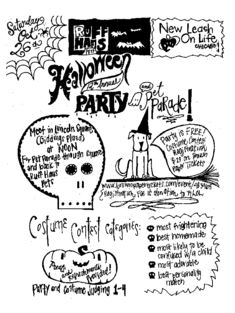 Saturday
Oct 26
RUFF
HAUS
PETS
New Leash
On Life
CHICAGO
Halloween
Annual
PARTY
and
Pet
Parade!
Meet in Lincoln Square
(Giddings Plaza)
@ NOON
For Pet Parade through Square
and back to
Ruff Haus
Pets
Party is FREE!
Costume Contest
Registration
Costume Contest Categories:
most frightening
best homemade
most likely to be
confused w/ a child
most adorable
best personality
match
Prizes
and
Refreshments
Provided!
Party and Costume Judging 1-4